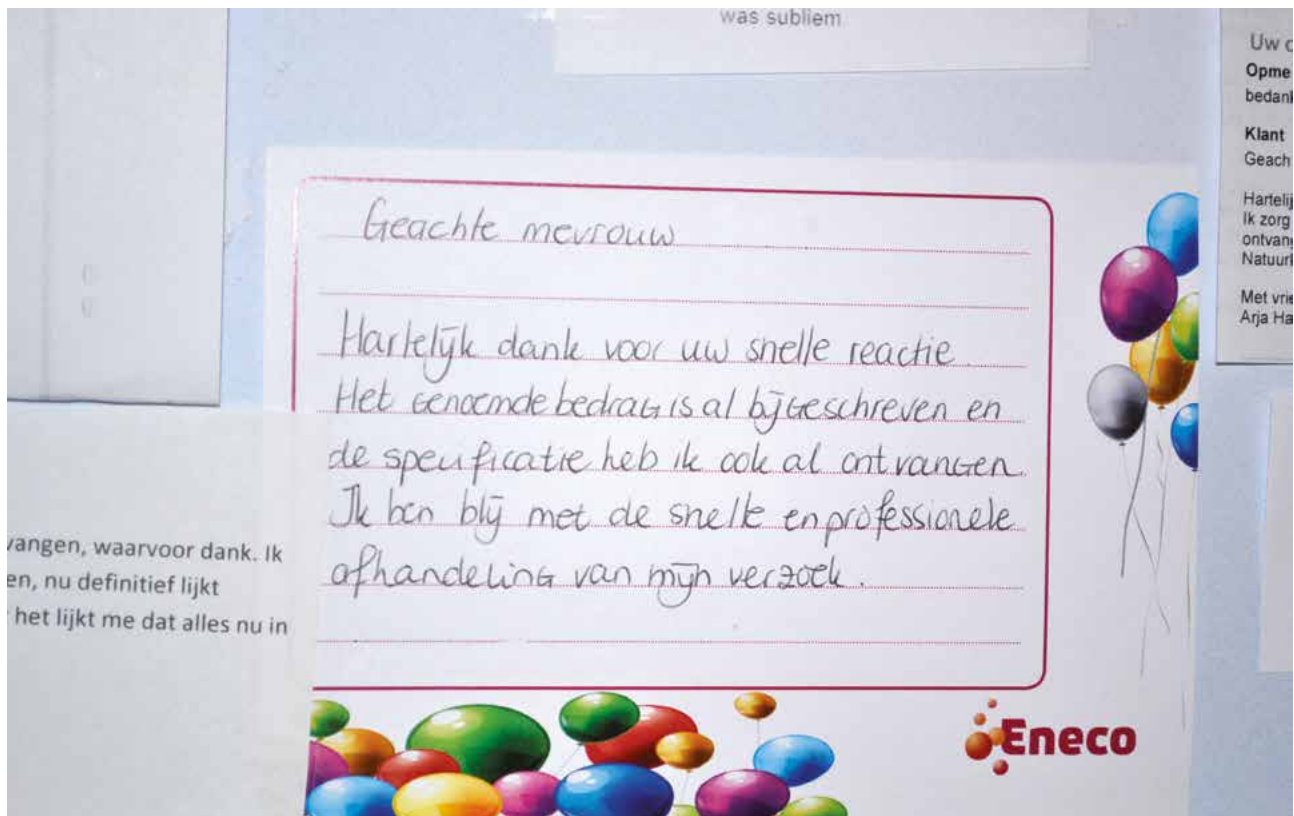 was subliem
Uw
Opme
bedank
Klant
Geach
Hartelij
Ik zorg
ontvang
Natuurl
Met vrie
Arja Ha
Geachte mevrouw
Hartelijk dank voor uw snelle reactie.
Het genoemde bedrag is al bijgeschreven en
de specificatie heb ik ook al ontvangen.
Ik ben blij met de snelle en professionele
afhandeling van mijn verzoek.
vangen, waarvoor dank. Ik
en, nu definitief lijkt
het lijkt me dat alles nu in
Eneco